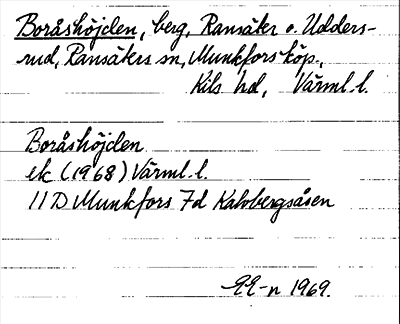 Boråshöjden, berg, Ransäter o. Udders-
rud, Ransäters sn, Munkfors köp.,
Kils hd, Värml. l.
Boråshöjden
ek (1968) Värml. l.
11 D Munkfors 7d Kalvbergsåsen
1969.